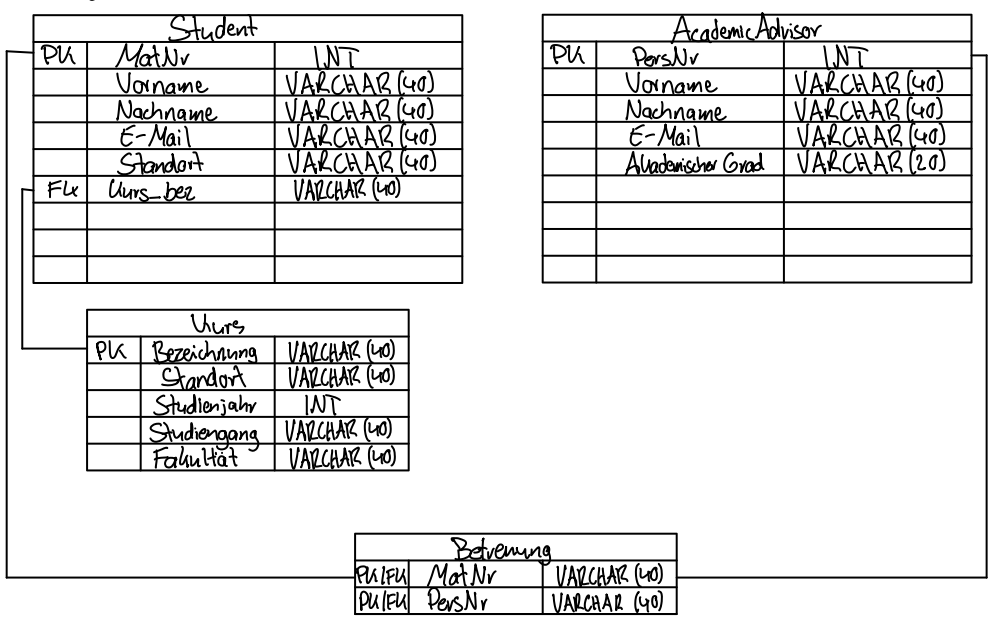 Student
PK MatNr INT
Vorname VARCHAR (40)
Nachname VARCHAR (40)
E-Mail VARCHAR (40)
Standort VARCHAR (40)
FK Kurs_bez VARCHAR (40)
AcademicAdvisor
PK PersNr INT
Vorname VARCHAR (40)
Nachname VARCHAR (40)
E-Mail VARCHAR (40)
Akademischer Grad VARCHAR (20)
Kurs
PK Bezeichnung VARCHAR (40)
Standort VARCHAR (40)
Studienjahr INT
Studiengang VARCHAR (40)
Fakultät VARCHAR (40)
Betreuung
PK/FK MatNr VARCHAR (40)
PK/FK PersNr VARCHAR (40)